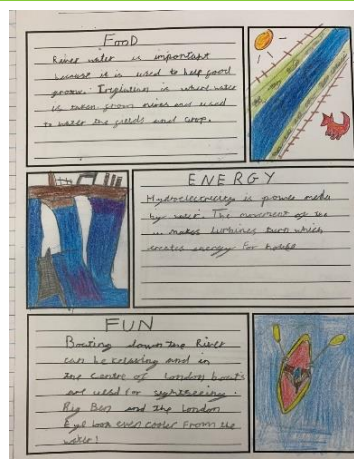 FOOD
River water is important
because it is used to help food
grow. Irrigation is where water
is taken from rivers and used
to water the fields and crop.
ENERGY
Hydroelectricity is power made
by water. The movement of the
makes turbines turn which
creates energy for
FUN
Boating down the River
can be relaxing and in
the centre of London boats
are used for sightseeing.
Big Ben and the London
Eye look even cooler from the
water!